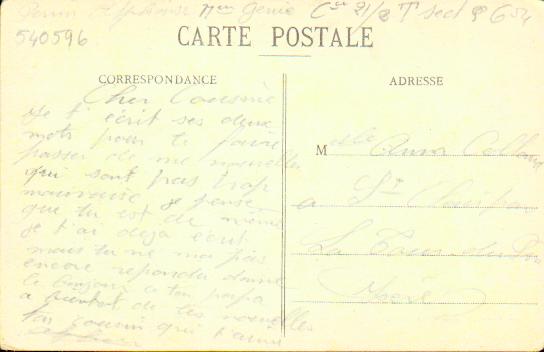 Perrin Alphonse 11me Génie Cie 21/2 T sect P 654
540596
CARTE POSTALE
CORRESPONDANCE
ADRESSE
Cher Cousine
Je t'écrit ses deux
mots pour te faire
passer de me nouvelles
qui sont pas trop
mauvaise je pense
que tu est de même
je t'ai déjà écrit
mais tu ne ma pas
encore repondu donne
le bonjour a ton papa
a bientot de tes nouvelles
ton cousin qui t'aime
Melle Anna
a St
La Tour du Pin
Isère